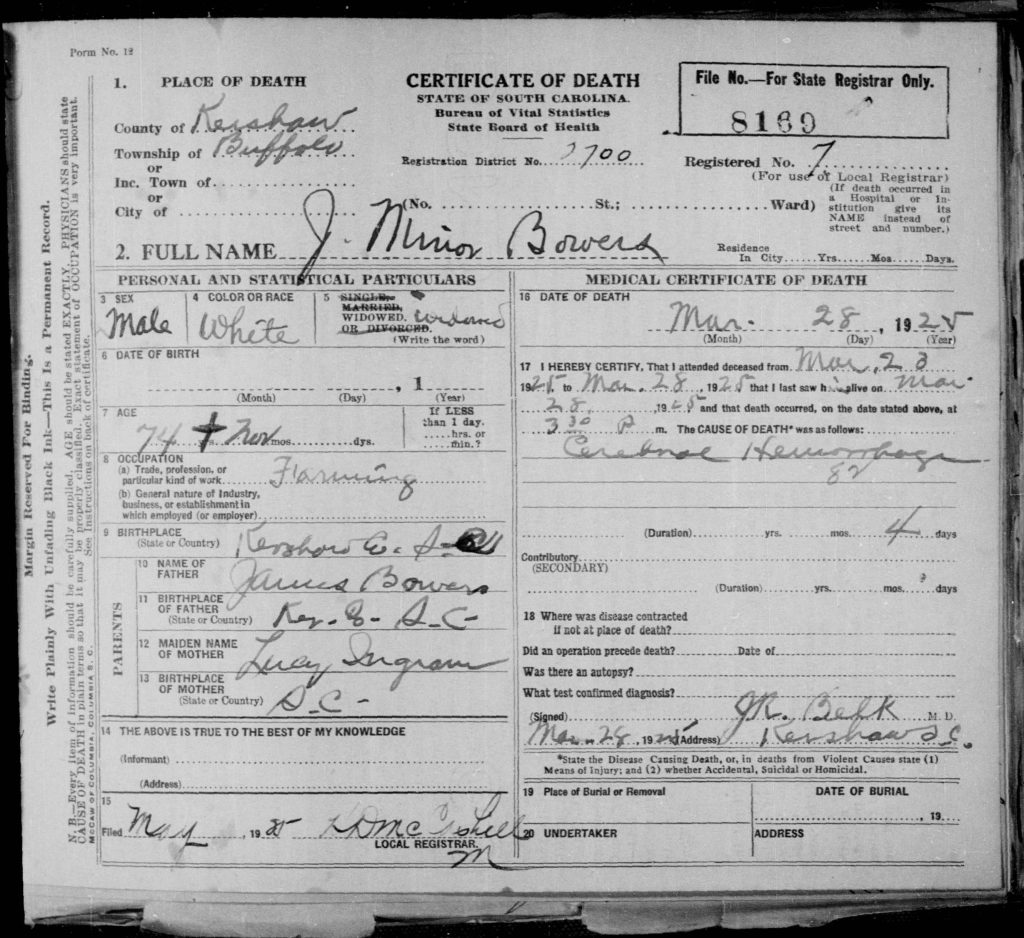 Form No. 12
1. PLACE OF DEATH
County of Kershaw
Township of Buffalo
or
Inc. Town of
or
City of
CERTIFICATE OF DEATH
STATE OF SOUTH CAROLINA.
Bureau of Vital Statistics
State Board of Health
Registration District No. 2700
File No.—For State Registrar Only.
8169
Registered No. 7
(For use of Local Registrar)
(No. St.; Ward)
(If death occurred in
a Hospital or In-
stitution give its
NAME instead of
street and number.)
2. FULL NAME J. Minor Bowers
Residence
In City Yrs. Mos. Days.
PERSONAL AND STATISTICAL PARTICULARS
3 SEX
Male
4 COLOR OR RACE
White
5 SINGLE,
MARRIED,
WIDOWED, widowed
OR DIVORCED.
(Write the word)
6 DATE OF BIRTH
, 1
(Month) (Day) (Year)
7 AGE
74 yrs. mos. dys.
If LESS
than 1 day.
hrs. or
min.?
8 OCCUPATION
(a) Trade, profession, or
particular kind of work Farming
(b) General nature of Industry,
business, or establishment in
which employed (or employer)
9 BIRTHPLACE
(State or Country) Kershaw Co. S.C.
PARENTS
10 NAME OF
FATHER James Bowers
11 BIRTHPLACE
OF FATHER
(State or Country) Ker. S.C.
12 MAIDEN NAME
OF MOTHER Lucy Ingram
13 BIRTHPLACE
OF MOTHER
(State or Country) S.C.
14 THE ABOVE IS TRUE TO THE BEST OF MY KNOWLEDGE
(Informant)
(Address)
15
Filed May 1925
LOCAL REGISTRAR.
MEDICAL CERTIFICATE OF DEATH
16 DATE OF DEATH
Mar. 28, 1925
(Month) (Day) (Year)
17 I HEREBY CERTIFY, That I attended deceased from Mar. 23
1925 to Mar. 28, 1925 that I last saw h alive on Mar.
28, 1925 and that death occurred, on the date stated above, at
3 30 P m. The CAUSE OF DEATH* was as follows:
Cerebral Hemorrhage
82
(Duration) yrs. mos. 4 days
Contributory
(SECONDARY)
(Duration) yrs. mos. days
18 Where was disease contracted
if not at place of death?
Did an operation precede death? Date of
Was there an autopsy?
What test confirmed diagnosis?
(Signed) J.R. Belk M. D.
Mar. 28, 1925 (Address) Kershaw S.C.
*State the Disease Causing Death, or, in deaths from Violent Causes state (1)
Means of Injury; and (2) whether Accidental, Suicidal or Homicidal.
19 Place of Burial or Removal
DATE OF BURIAL
, 19
20 UNDERTAKER
ADDRESS
Margin Reserved For Binding.
Write Plainly With Unfading Black Ink—This Is a Permanent Record.
N. B.—Every item of Information should be carefully supplied. AGE should be stated EXACTLY. PHYSICIANS should state
CAUSE OF DEATH in plain terms so that it may be properly classified. Exact statement of OCCUPATION is very important.
See Instructions on back of certificate.
McCAW OF COLUMBIA, COLUMBIA S. C.